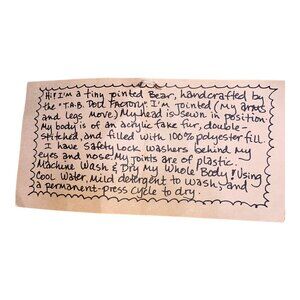 Hi! I'm a tiny jointed Bear, handcrafted by
the "T.A.B. Doll Factory". I'm jointed (My arms
and legs move) My head is sewn in position.
My body is of an acrylic fake fur, double-
stitched, and filled with 100% polyester fill.
I have Safety Lock washers behind my
eyes and nose. My joints are of plastic.
Machine Wash & Dry My Whole Body! Using
Cool Water, mild detergent to wash, and
a permanent-press cycle to dry.